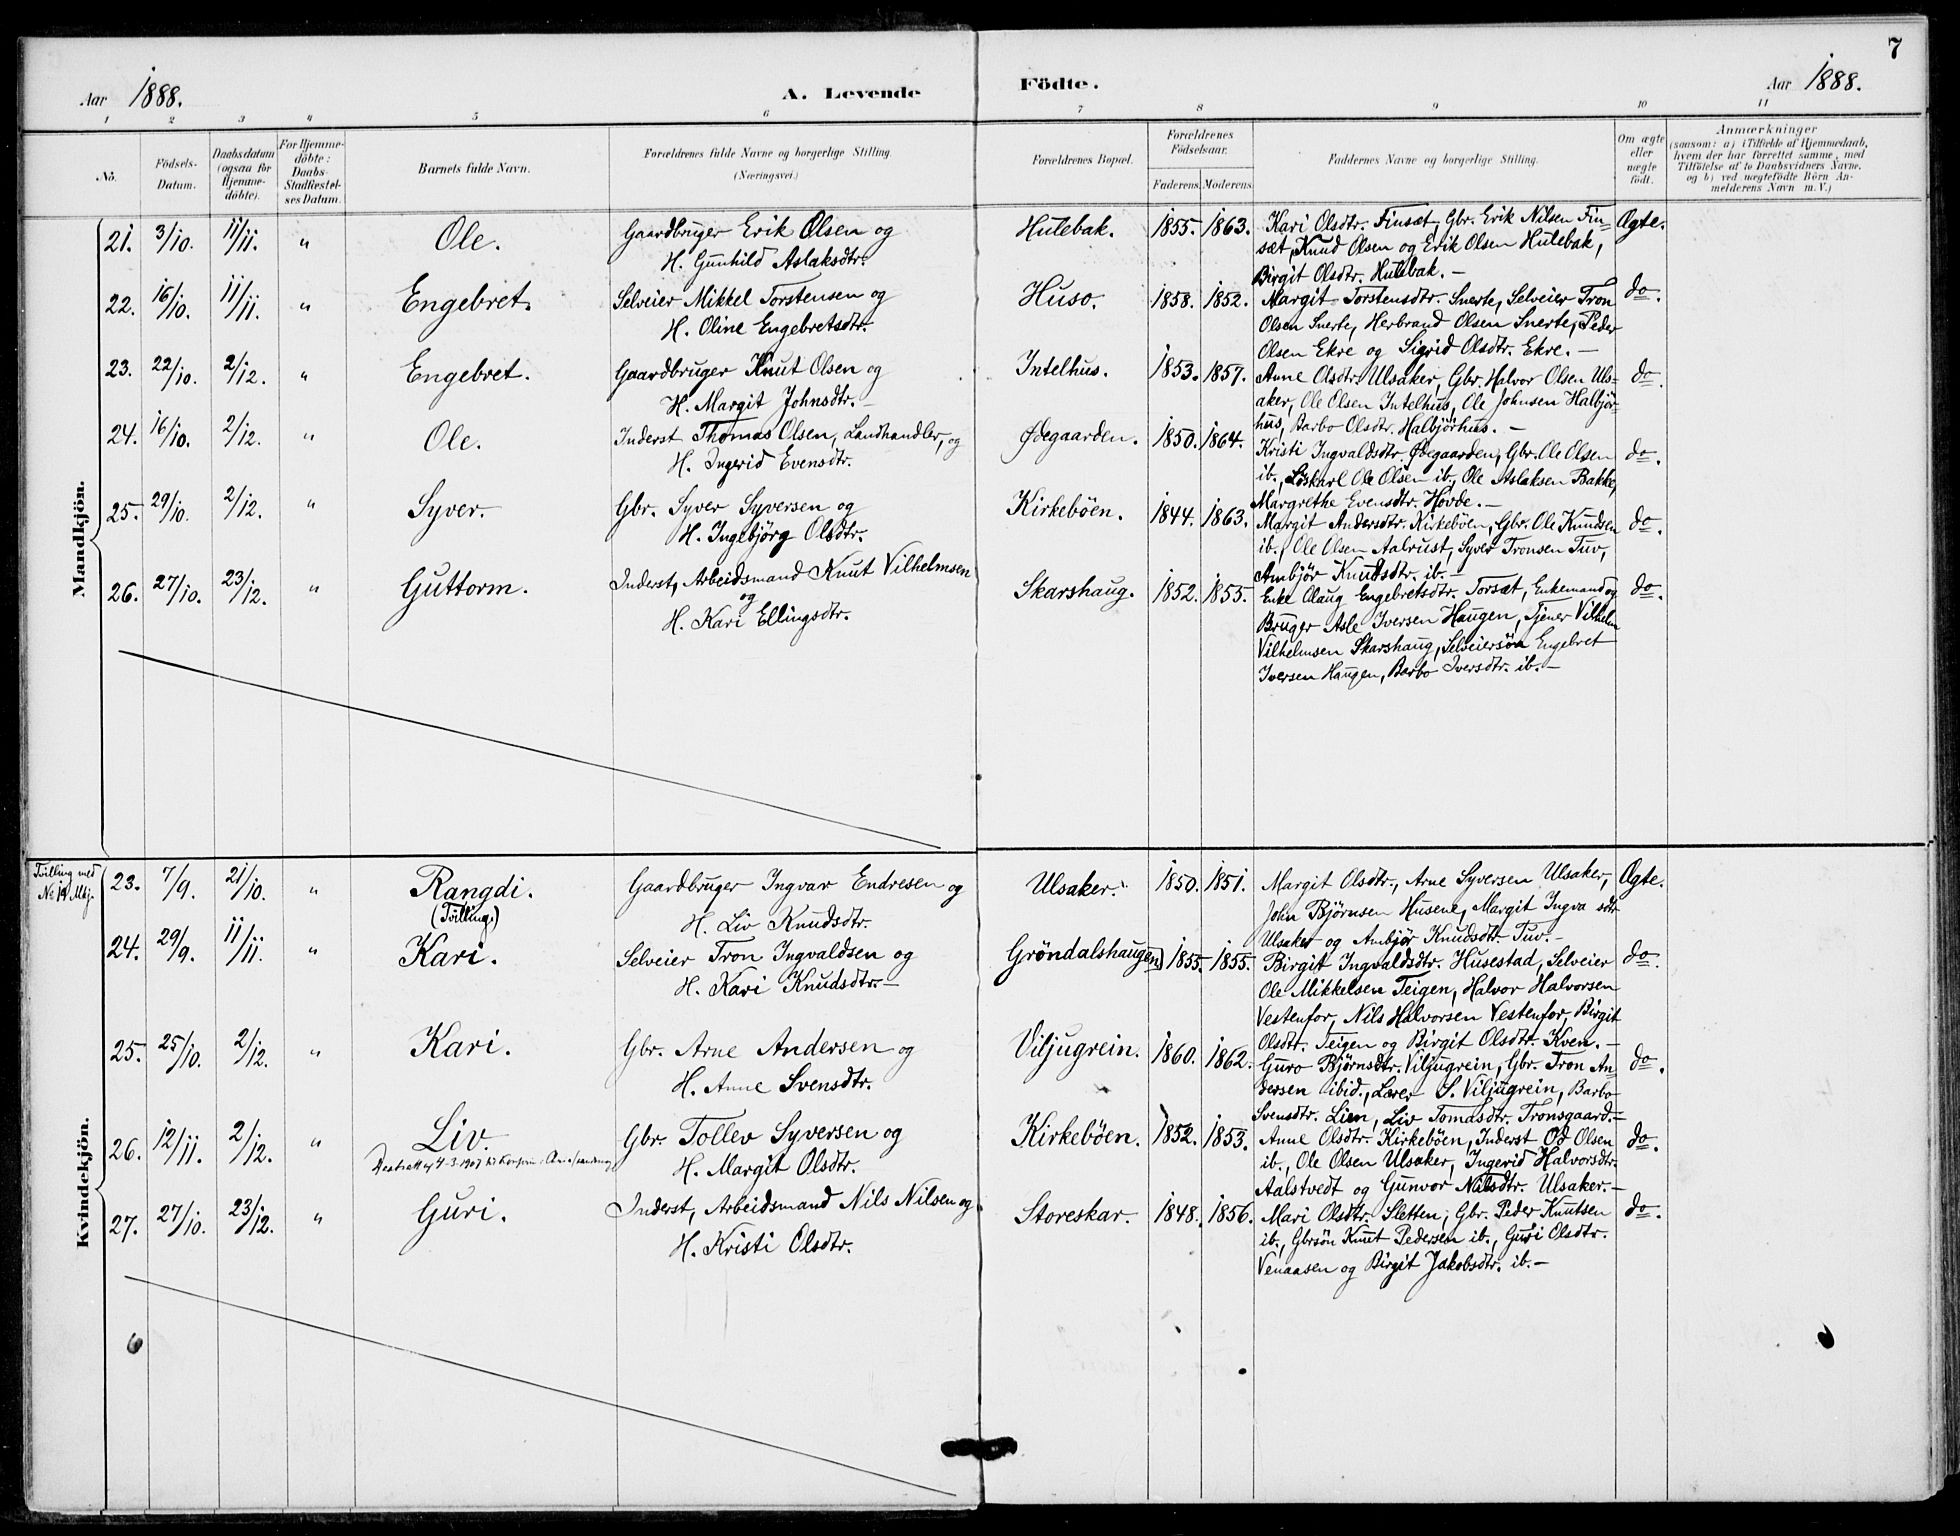 7
Aar 1888.
A. Levende
Födte.
Aar 1888.
1 2 3 4 5 6 7 8 9 10 11
No.
Födsels-
Datum.
Daabsdatum
(ogsaa for
Hjemme-
döbte).
For Hjemme-
döbte:
Daabs-
Stadfæstel-
ses Datum.
Barnets fulde Navn.
Forældrenes fulde Navne og borgerlige Stilling.
(Næringsvei.)
Forældrenes Bopæl.
Forældrenes
Födselsaar.
Faderens. Moderens.
Faddernes Navne og borgerlige Stilling.
Om ægte
eller
uægte
födt.
Anmærkninger
(saasom: a) i Tilfælde af Hjemmedaab,
hvem der har forrettet samme, med
Tilföielse af to Daabsvidners Navne,
og b) ved uægtefödte Börn An-
melderens Navn m. V.)
Mandkjön.
21. 3/10. 11/11. " Ole.
Gaardbruger Erik Olsen og
H. Gunhild Aslaksdtr.
Hulebak. 1855. 1863.
Kari Olsdtr. Finsæt, Gbr. Erik Nilsen Fin-
sæt, Knud Olsen og Erik Olsen Hulebak,
Birgit Olsdtr. Hulebak. —
Ægte.
22. 16/10. 11/11. " Engebret.
Selveier Mikkel Torstensen og
H. Oline Engebretsdtr.
Huso. 1858. 1852.
Margit Torstensdtr. Snerte, Selveier Tron
Olsen Snerte, Herbrand Olsen Snerte, Peder
Olsen Ekre og Sigrid Olsdtr. Ekre. —
do.
23. 22/10. 2/12. " Engebret.
Gaardbruger Knut Olsen og
H. Margit Johnsdtr. —
Intelhus. 1853. 1857.
Anne Olsdtr. Ulsaker, Gbr. Halvor Olsen Uls-
aker, Ole Olsen Intelhus, Ole Johnsen Halbjör-
hus, Barbo Olsdtr. Halbjörhus. —
do.
24. 16/10. 2/12. " Ole.
Inderst Thomas Olsen, Landhandler, og
H. Ingerid Evensdtr.
Ødegaarden. 1850. 1864.
Kristi Ingvaldsdtr. Ødegaarden, Gbr. Ole Olsen
ib., Löskarl Ole Olsen ib., Ole Aslaksen Bakke,
Margrethe Evensdtr. Hovde. —
do.
25. 29/10. 2/12. " Syver.
Gbr. Syver Syversen og
H. Ingebjörg Olsdtr.
Kirkeböen. 1844. 1863.
Margit Andersdtr. Kirkeböen, Gbr. Ole Knudsen
ib., Ole Olsen Aalrust, Syver Tronsen Tuv,
Ambjör Knudsdtr. ib. —
do.
26. 27/10. 23/12. " Guttorm.
Inderst, Arbeidsmand Knut Vilhelmsen
og
H. Kari Ellingsdtr.
Skarshaug. 1852. 1855.
Enke Olaug Engebretsdtr. Torsæt, Enkemand og
Bruger Asle Iversen Haugen, Tjener Vilhelm
Vilhelmsen Skarshaug, Selveiersön Engebret
Iversen Haugen, Barbo Iversdtr. ib. —
do.
Kvindekjön.
Tvilling med
No 19 Mkj.
23. 7/9. 21/10. " Rangdi.
(Tvilling.)
Gaardbruger Ingvar Endresen og
H. Liv Knudsdtr.
Ulsaker. 1850. 1851.
Margit Olsdtr., Arne Syversen Ulsaker,
John Björnsen Husene, Margit Ingva sdtr
Ulsaker og Ambjör Knudsdtr. Tuv. —
Ægte.
24. 29/9. 11/11. " Kari.
Selveier Tron Ingvaldsen og
H. Kari Knudsdtr. —
Gröndalshaugen 1855. 1855.
Birgit Ingvaldsdtr. Husestad, Selveier
Ole Mikkelsen Teigen, Halvor Halvorsen
Vestenfor, Nils Halvorsen Vestenfor, Birgit
Olsdtr. Teigen og Birgit Olsdtr. Kven. —
do.
25. 25/10. 2/12. " Kari.
Gbr. Arne Andersen og
H. Anne Svensdtr.
Viljugrein. 1860. 1862.
Guro Björnsdtr. Viljugrein, Gbr. Tron An-
dersen ibid., Lærer S. Viljugrein, Barbo
Svensdtr. Lien, Liv Tomasdtr. Tronsgaard. —
do.
26. 12/11. 2/12. " Liv.
4-3-1907
Gbr. Tollev Syversen og
H. Margit Olsdtr.
Kirkeböen. 1852. 1853.
Anne Olsdtr. Kirkeböen, Inderst Od Olsen
ib., Ole Olsen Ulsaker, Ingerid Halvorsdtr.
Aalstvedt og Gunvor Nilsdtr. Ulsaker. —
do.
27. 27/10. 23/12. " Guri.
Inderst, Arbeidsmand Nils Nilsen og
H. Kristi Olsdtr.
Storeskar. 1848. 1856.
Mari Olsdtr. Sletten, Gbr. Peder Knutsen
ib., Gbrsön Knut Pedersen ib., Guri Olsdtr.
Venaasen og Birgit Jakobsdtr. ib. —
do.